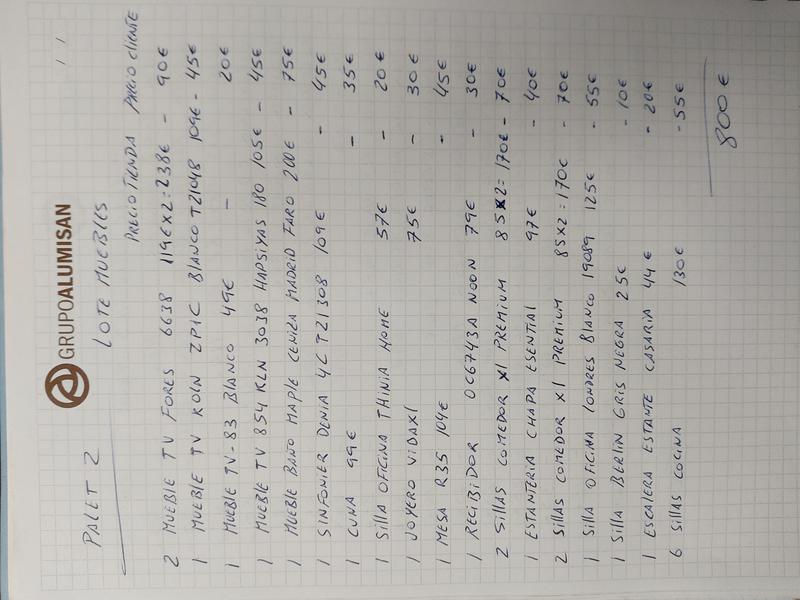 GRUPOALUMISAN
PALET 2 LOTE MUEBLES
PRECIO TIENDA PRECIO CLIENTE
2 MUEBLE TV FORES 6638 119€X2=238€ - 90€
1 MUEBLE TV KOLN ZPIC BLANCO TZ1048 109€ - 45€
1 MUEBLE TV-83 BLANCO 49€ - 20€
1 MUEBLE TV 854 KLN 3038 HAPSIYAS 180 105€ - 45€
1 MUEBLE BAÑO MAPLE CENIZA MADRID FARO 200€ - 75€
1 SINFONIER DENIA 4C TZ1308 109€ - 45€
1 CUNA 99€ - 35€
1 SILLA OFICINA THINIA HOME 57€ - 20€
1 JOYERO VIDAXL 75€ - 30€
1 MESA R35 104€ - 45€
1 RECIBIDOR 0C6743A NOON 79€ - 30€
2 SILLAS COMEDOR XL PREMIUM 85X2=170€ - 70€
1 ESTANTERIA CHAPA ESENTIAL 97€ - 40€
2 SILLAS COMEDOR XL PREMIUM 85X2=170€ - 70€
1 SILLA OFICINA LONDRES BLANCO 19089 125€ - 55€
1 SILLA BERLIN GRIS NEGRA 25€ - 10€
1 ESCALERA ESTANTE CASARIA 44€ - 20€
6 SILLAS COCINA 130€ - 55€
800€